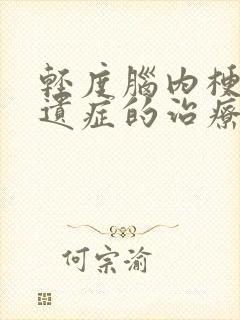 輕度腦內梗
遺症的治療
何宗渝